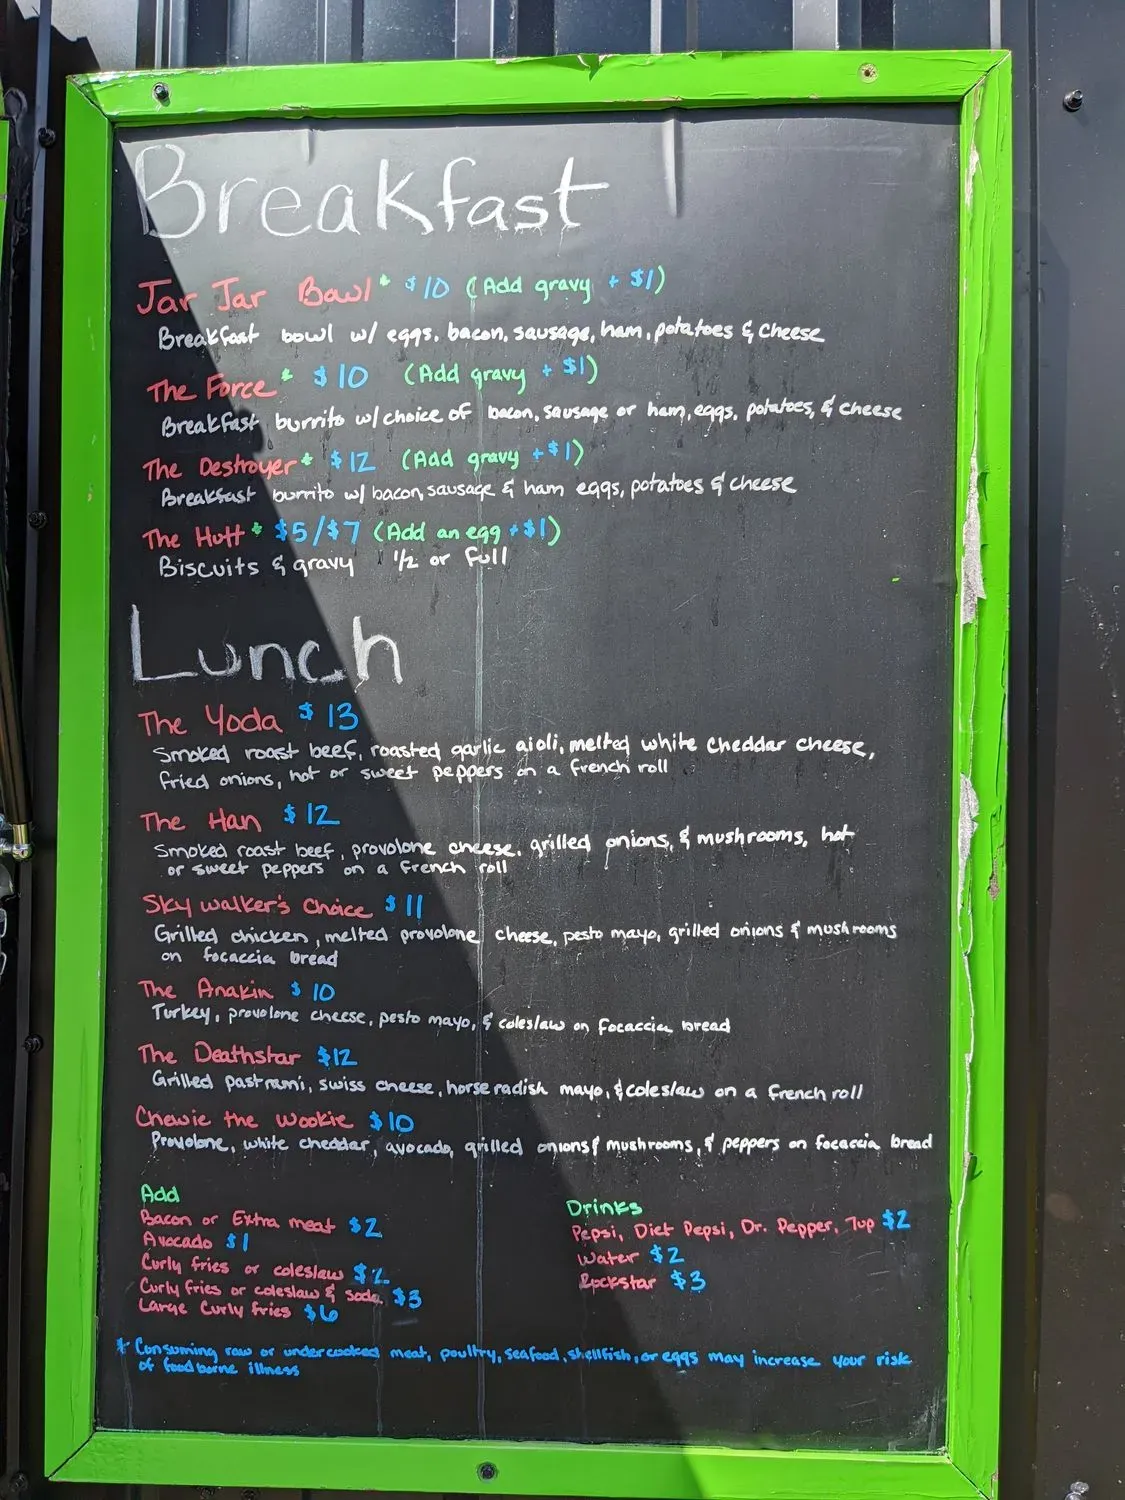 Breakfast
Jar Jar Bowl* $10 (Add gravy + $1)
Breakfast bowl w/ eggs, bacon, sausage, ham, potatoes & cheese
The Force* $10 (Add gravy + $1)
Breakfast burrito w/ choice of bacon, sausage or ham, eggs, potatoes, & cheese
The Destroyer* $12 (Add gravy + $1)
Breakfast burrito w/ bacon, sausage & ham eggs, potatoes & cheese
The Hutt* $5/$7 (Add an egg + $1)
Biscuits & gravy 1/2 or Full
Lunch
The Yoda $13
Smoked roast beef, roasted garlic aioli, melted white cheddar cheese,
fried onions, hot or sweet peppers on a french roll
The Han $12
Smoked roast beef, provolone cheese, grilled onions, & mushrooms, hot
or sweet peppers on a french roll
Sky walker's Choice $11
Grilled chicken, melted provolone cheese, pesto mayo, grilled onions & mushrooms
on focaccia bread
The Anakin $10
Turkey, provolone cheese, pesto mayo, & coleslaw on focaccia bread
The Deathstar $12
Grilled pastrami, swiss cheese, horseradish mayo, & coleslaw on a french roll
Chewie the Wookie $10
Provolone, white cheddar, avocado, grilled onions & mushrooms, & peppers on focaccia bread
Add
Bacon or Extra meat $2
Avocado $1
Curly fries or coleslaw $2
Curly fries or coleslaw & soda $3
Large Curly fries $6
Drinks
Pepsi, Diet Pepsi, Dr. Pepper, 7up $2
Water $2
Rockstar $3
* Consuming raw or undercooked meat, poultry, seafood, shellfish, or eggs may increase your risk
of foodborne illness